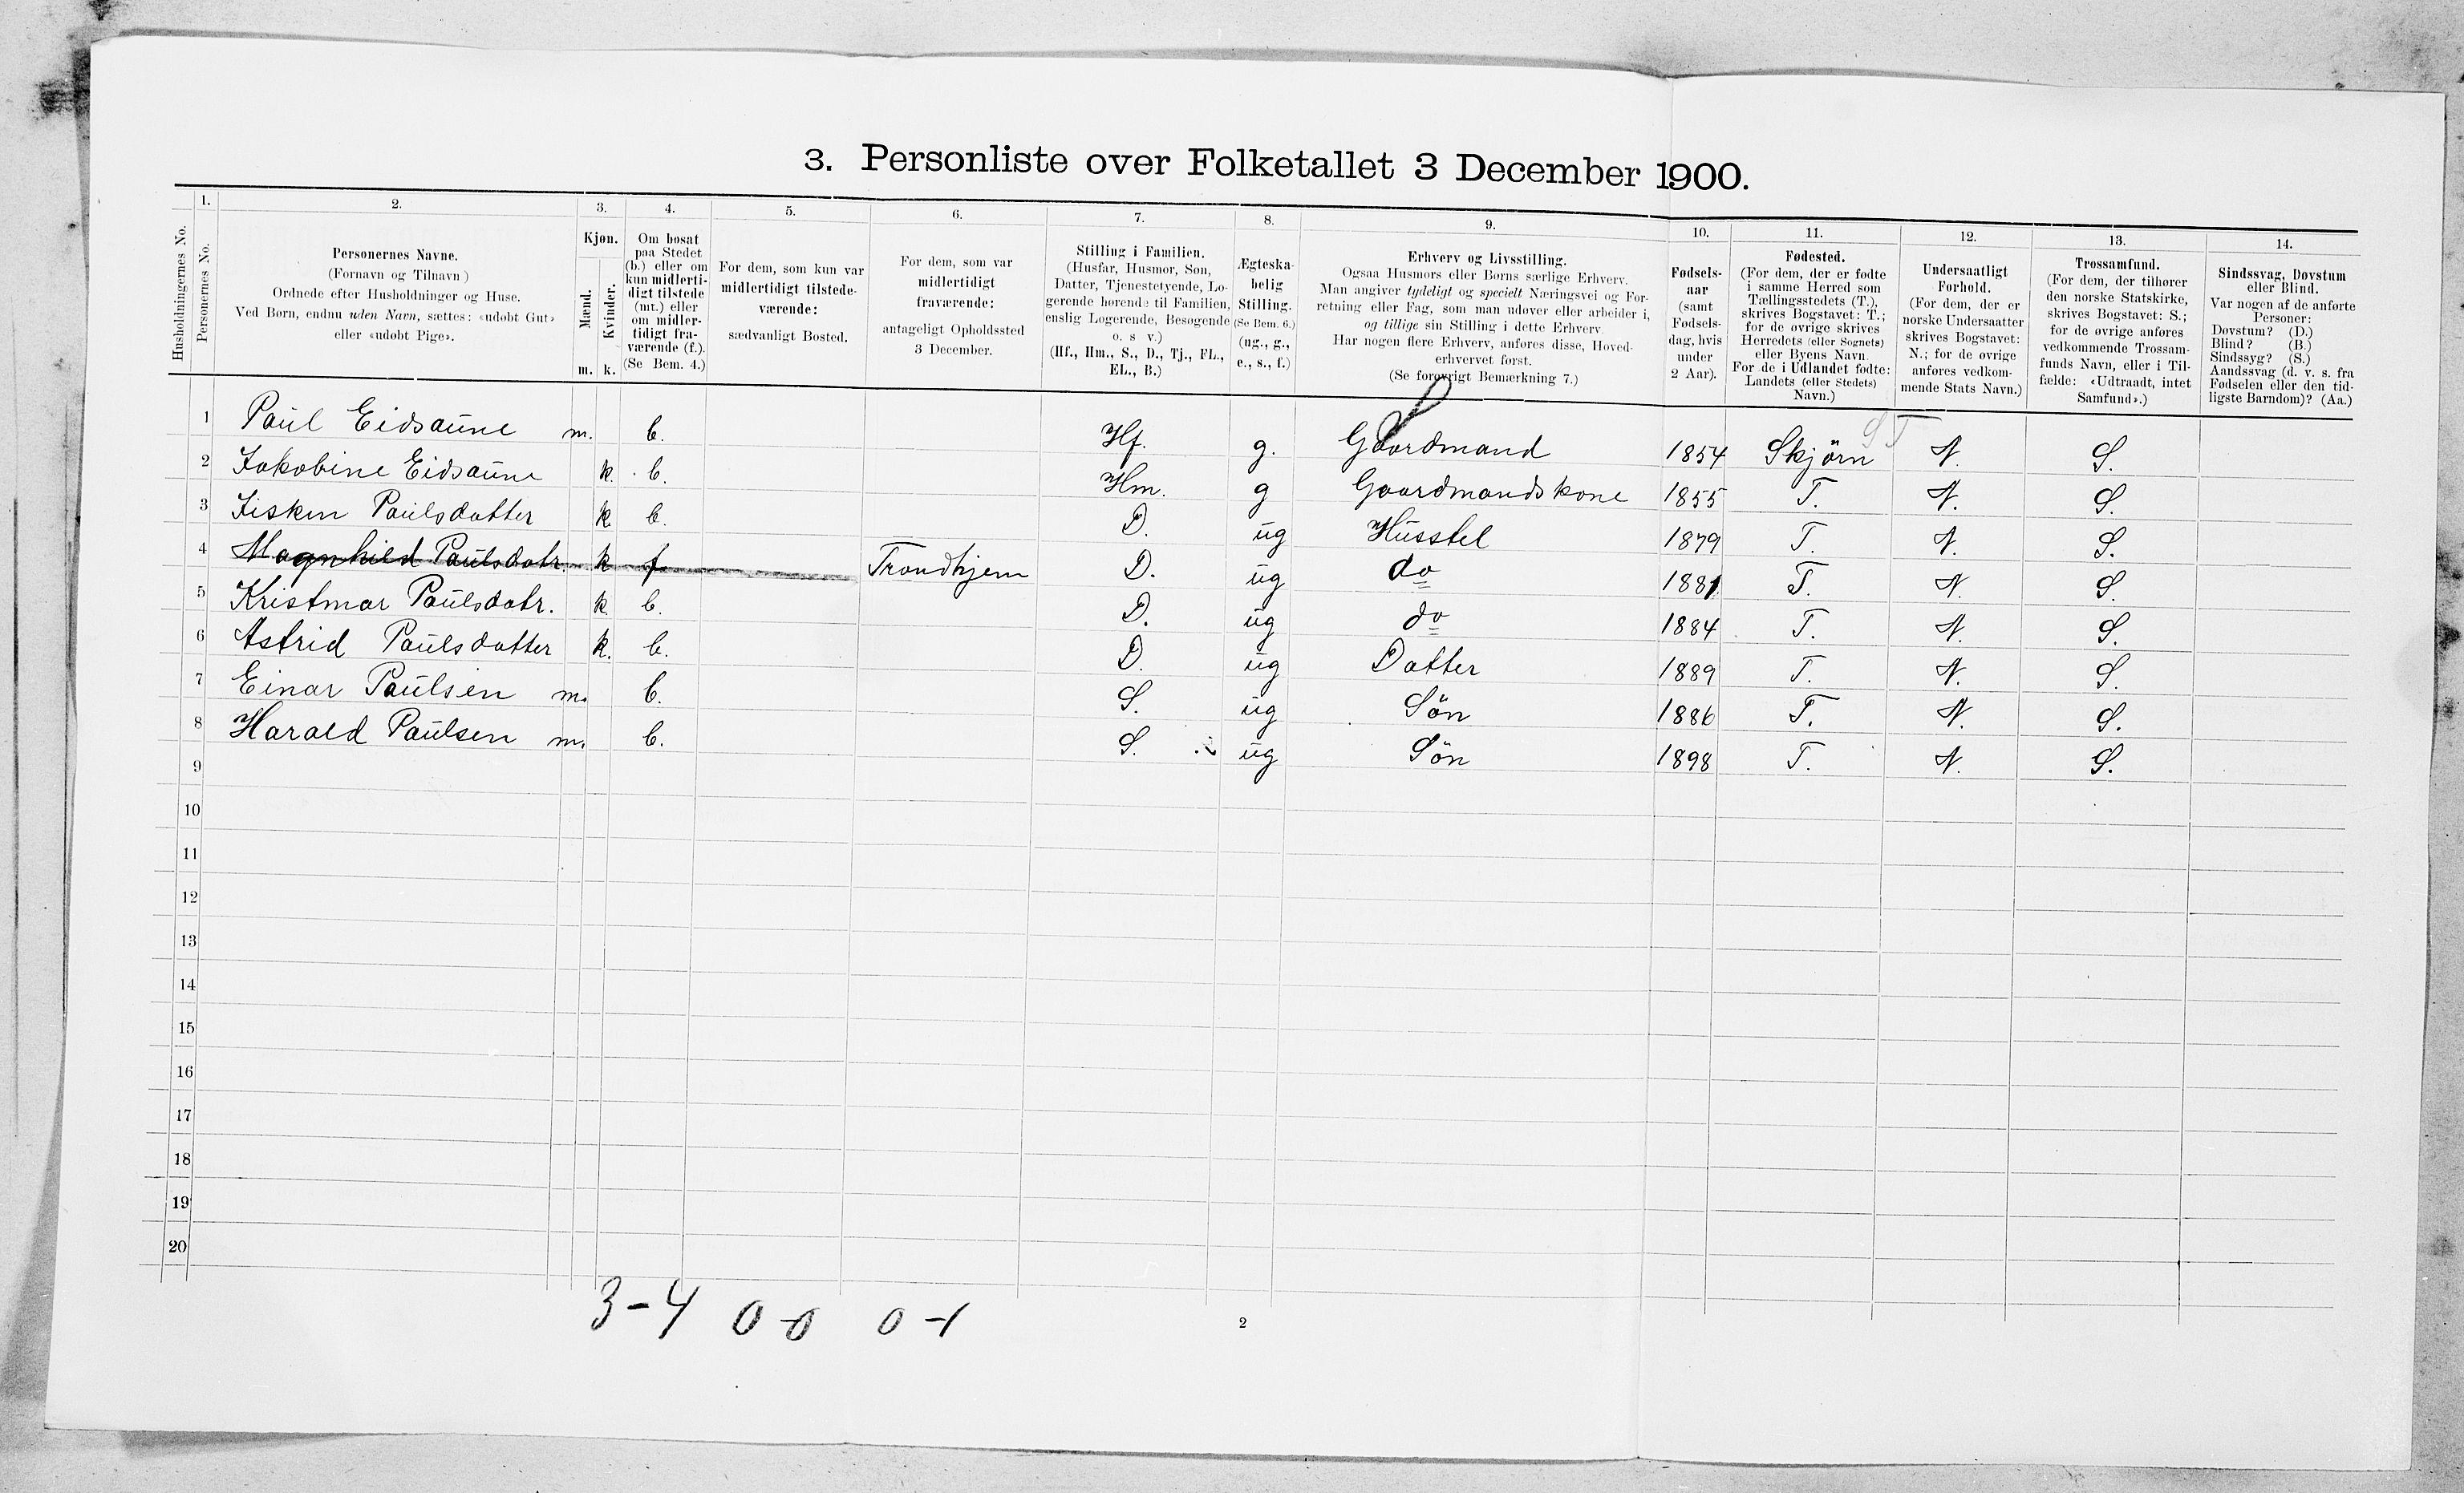 3. Personliste over Folketallet 3 December 1900.
1. 2. 3. 4. 5. 6. 7. 8. 9. 10. 11. 12. 13. 14.
Husholdningernes No.
Personernes No.
Personernes Navne.
(Fornavn og Tilnavn)
Ordnede efter Husholdninger og Huse.
Ved Børn, endnu uden Navn, sættes: «udøbt Gut»
eller «udøbt Pige».
Kjøn.
Mænd.
Kvinder.
m. k.
Om bosat
paa Stedet
(b.) eller om
kun midlerti-
digt tilstede
(mt.) eller
om midler-
tidigt fra-
værende (f.).
(Se Bem. 4.)
For dem, som kun var
midlertidigt tilstede-
værende:
sædvanligt Bosted.
For dem, som var
midlertidigt
fraværende:
antageligt Opholdssted
3 December.
Stilling i Familien.
(Husfar, Husmor, Søn,
Datter, Tjenestetyende, Lo-
gerende hørende til Familien,
enslig Logerende, Besøgende
o. s v.)
(Hf., Hm., S., D., Tj., FL.,
EL., B.)
Ægteska-
belig
Stilling.
(Se Bem. 6.)
(ug., g.,
e., s., f.)
Erhverv og Livsstilling.
Ogsaa Husmors eller Børns særlige Erhverv.
Man angiver tydeligt og specielt Næringsvei og For-
retning eller Fag, som man udøver eller arbeider i,
og tillige sin Stilling i dette Erhverv.
Har nogen flere Erhverv, anføres disse, Hoved-
erhvervet først.
(Se forøvrigt Bemærkning 7.)
Fødsels-
aar
(samt
Fødsels-
dag, hvis
under
2 Aar).
Fødested.
(For dem, der er fødte
i samme Herred som
Tællingsstedets (T.),
skrives Bogstavet: T.;
for de øvrige skrives
Herredets (eller Sognets)
eller Byens Navn.
For de i Udlandet fødte:
Landets (eller Stedets)
Navn.)
Undersaatligt
Forhold.
(For dem, der er
norske Undersaatter
skrives Bogstavet:
N.; for de øvrige
anføres vedkom-
mende Stats Navn.)
Trossamfund.
(For dem, der tilhører
den norske Statskirke,
skrives Bogstavet: S.;
for de øvrige anføres
vedkommende Trossam-
funds Navn, eller i Til-
fælde: «Udtraadt, intet
Samfund».)
Sindssvag, Døvstum
eller Blind.
Var nogen af de anførte
Personer:
Døvstum? (D.)
Blind? (B.)
Sindssyg? (S.)
Aandssvag (d. v. s. fra
Fødselen eller den tid-
ligste Barndom)? (Aa.)
S T
1 Paul Eidsaune m. b. Hf. g. Gaardmand 1854 Skjörn N. S.
2 Jakobine Eidsaune k. b. Hm. g Gaardmandskone 1855 T. N. S.
3 Paulsdatter k b. D. ug Husstel 1879 T. N. S.
4 Magnhild Paulsdatr. k f Trondhjem D. ug do 1881 T. N. S.
5 Kristmar Paulsdatr. k b. D. ug do 1884 T. N. S.
6 Astrid Paulsdatter k. b. D. ug Datter 1889 T. N. S.
7 Einar Paulsen m. b. S. ug Sön 1886 T. N. S.
8 Harald Paulsen m. b. S. ug Sön 1898 T. N. S.
9
10
11
12
13
14
15
16
17
18
19
20
3-4 0-0 0-1
2